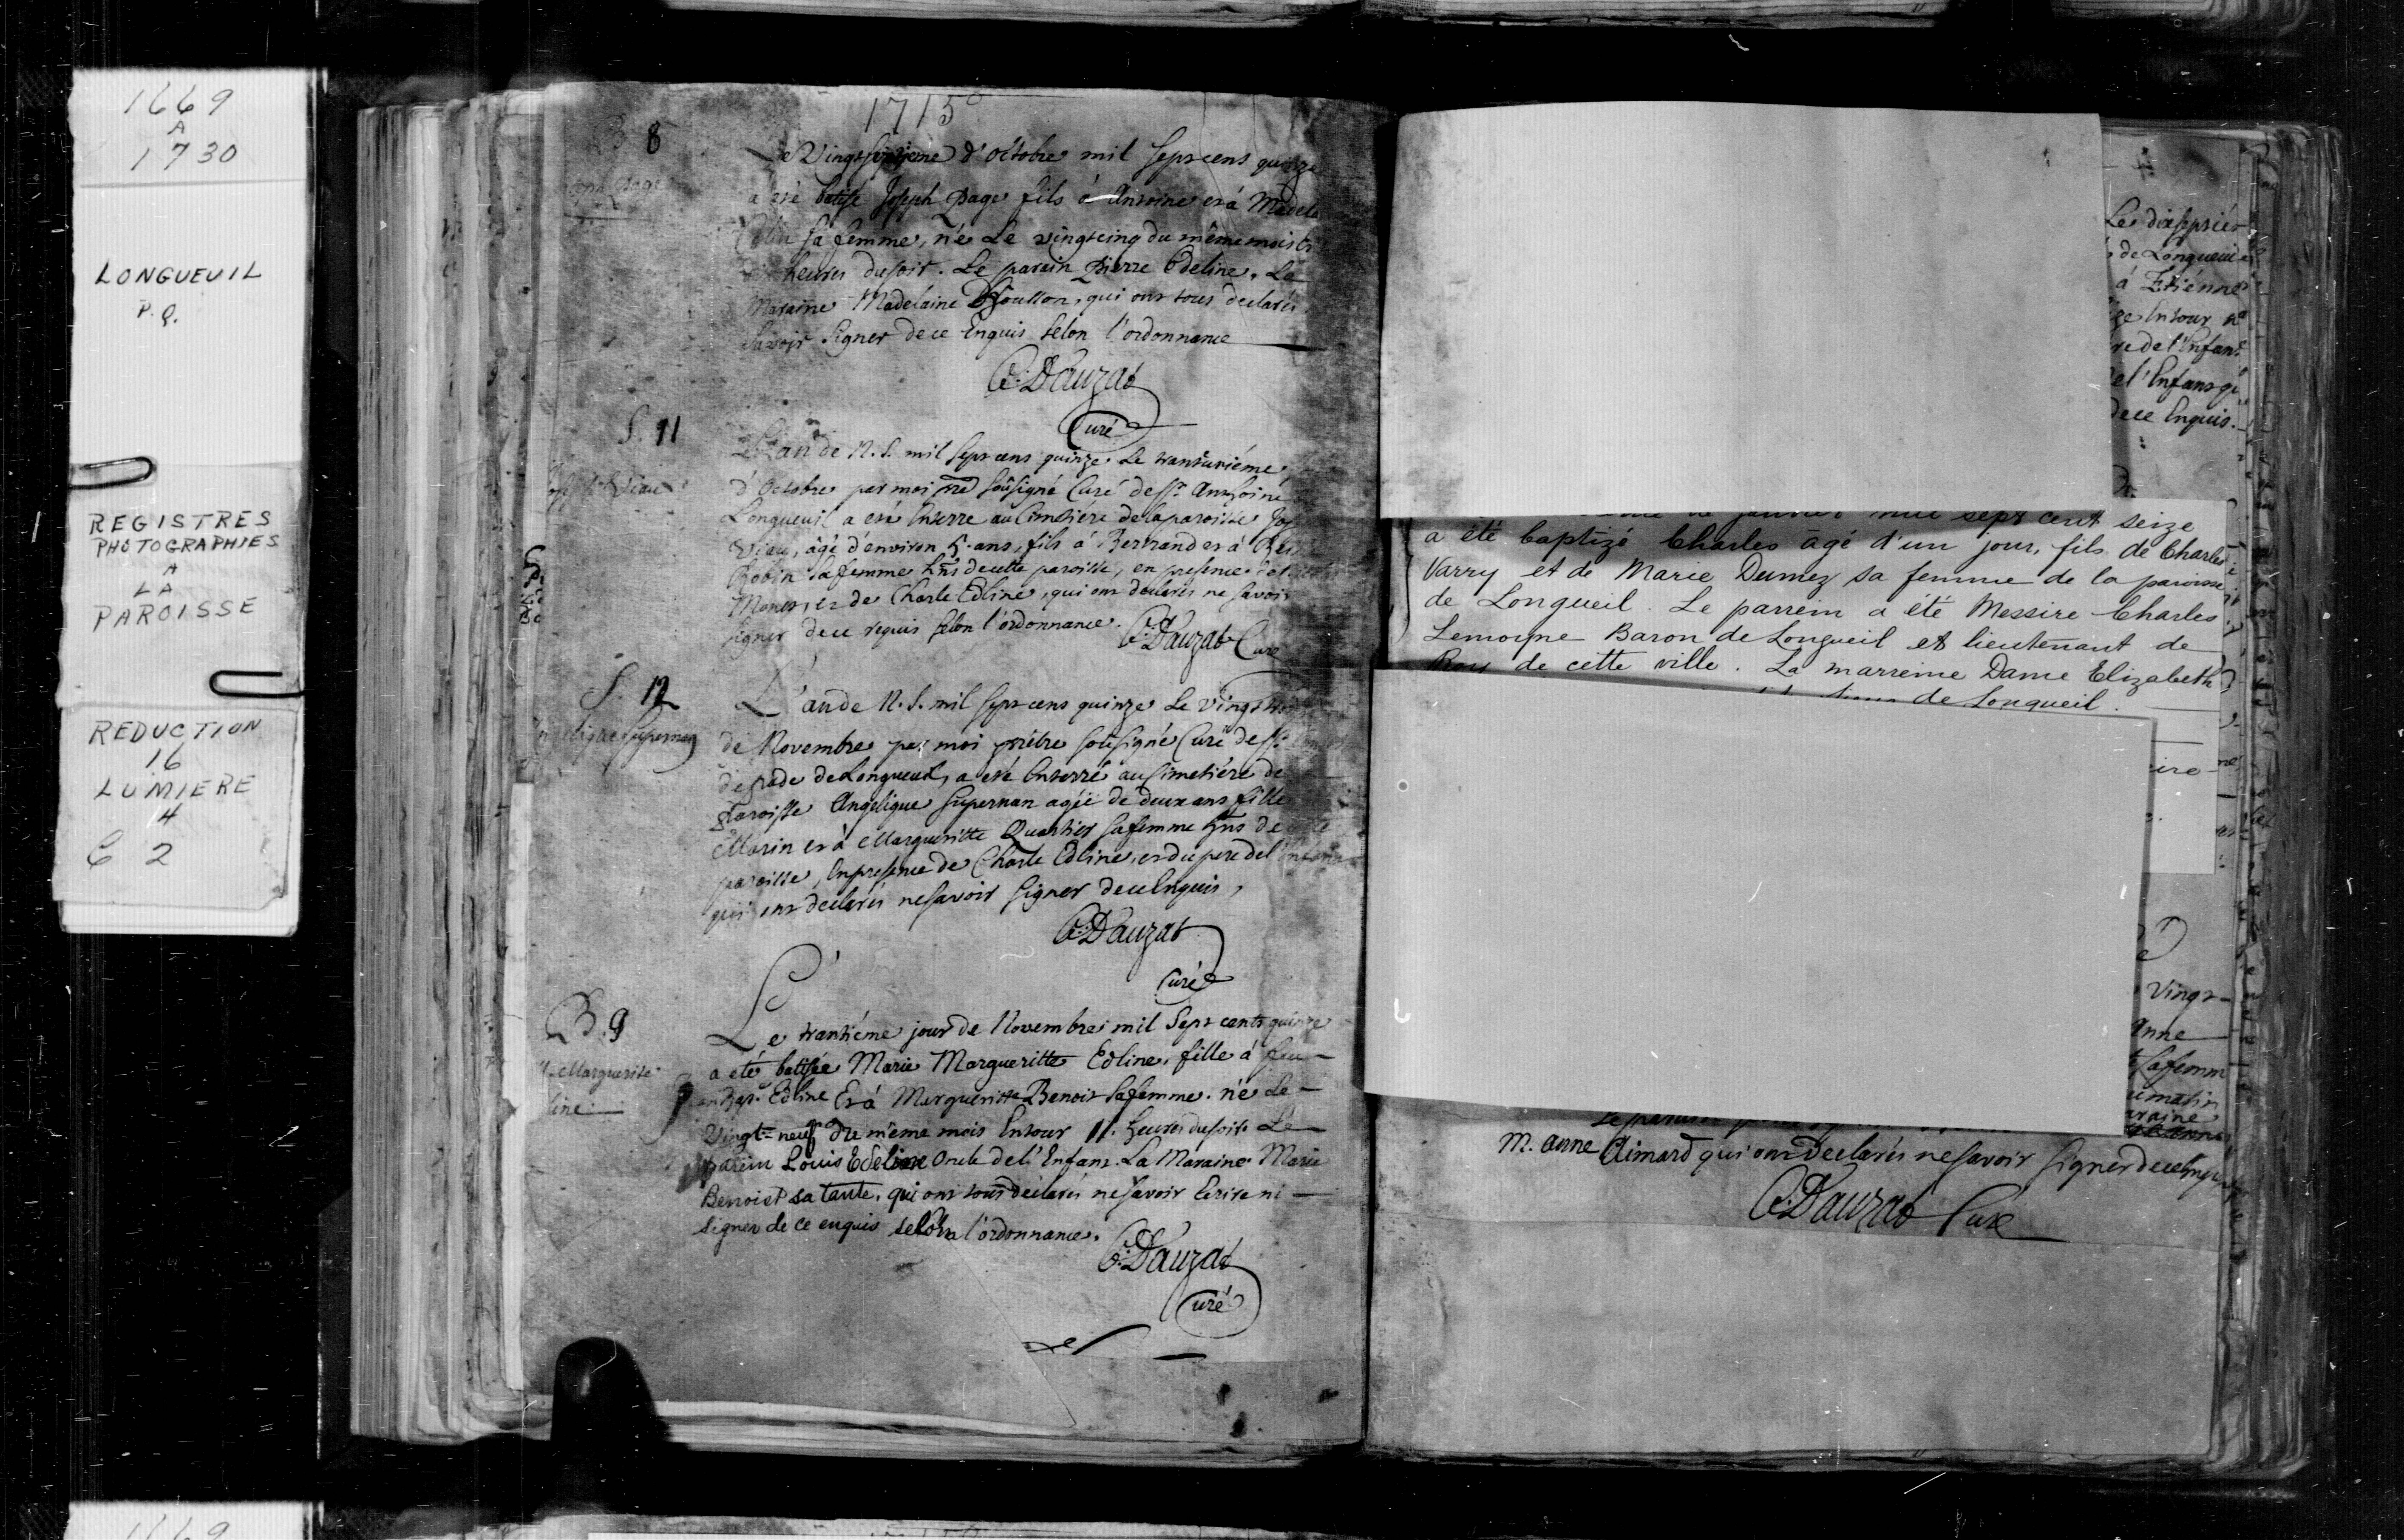 1669
A
1730
LONGUEUIL
P.Q.
REGISTRES
PHOTOGRAPHIES
A
LA
PAROISSE
REDUCTION
16
LUMIERE
4
C 2
1715
B 8
Le Vingtseptieme d'Octobre mil sept cens quinze
a eté batisé Joseph Page fils á Antoine et á Madel
sa femme, né Le vingtcinq du même mois
heures du soir. Le parein Pierre Edeline. La
Maraine Madelaine qui ont tous declarés
Savoir Signer de ce Enquis selon l'ordonnance
C. Dauzat
Curé
S. 11
L'an de N. S. mil sept cens quinze Le
d'Octobre par moi pre soûsigné Curé de St. Antoine
Longueuil a eté Enterré au Cimetiére de la paroisse Jos
Viau, âgé d'environ 5 ans, fils á Bertrand et á
Robin sa femme hns de cette paroisse, en presence de
et de Charle Edline, qui ont declarés ne savoir
signer de ce requis selon l'ordonnance. C. Dauzat Curé
S. 12
Angelique Supernan
L'an de N. S. mil sept cens quinze Le vingt
de Novembre par moi prêtre soûsigné Curé de St.
de pade de Longueuil, a eté Enterré au Cimetiére de
paroisse Angelique Supernan agéé de deux ans fille
Marin et á Margueritte Quartier sa femme hns de cette
paroisse, En presence de Charle Edline, et du pere de l'Enfant
qui ont declarés ne savoir signer de ce Enquis,
C. Dauzat
Curé
B. 9
M. Marguerite
line
Le trantiéme jour de Novembre mil Sept cents quinze
a été batisée Marie Margueritte Edline, fille á feu
Jean Bapt. Edline Et á Margueritte Benoit sa femme. née Le
Vingt-neuf du même mois Entour 11. heures du soir. Le
parein Louis Edeline Oncle de l'Enfant. La Maraine Marie
Benoist sa tante, qui ont tous declarés ne savoir Ecrire ni
signer de ce enquis selon l'ordonnance.
C. Dauzat
Curé
Le dixseptiém
de Longueuil
á Etiénne
Entour
re de l'Enfant
de l'Enfant qi
de ce Enquis.
janvier mil sept cent seize
a été baptizé Charles âgé d'un jour, fils de Charles
Varry et de Marie Dumez sa femme de la paroisse
de Longueil. Le parrein a été Messire Charles
Lemoyne Baron de Longueil et lieutenant de
Roy de cette ville. La marreine Dame Elizabeth
de Longueil.
Vingt-
Anne
sa femm
maraine
M. Anne Aimard qui ont Declarés ne savoir signer de ce Enquis
C. Dauzat Curé
1669